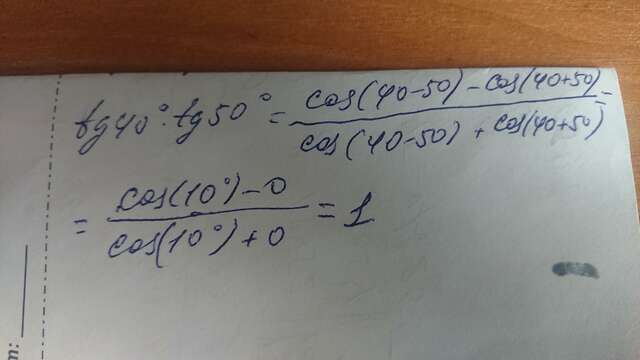 tg40°·tg50° = cos(40-50) - cos(40+50) / cos(40-50) + cos(40+50) =
= cos(10°) - 0 / cos(10°) + 0 = 1